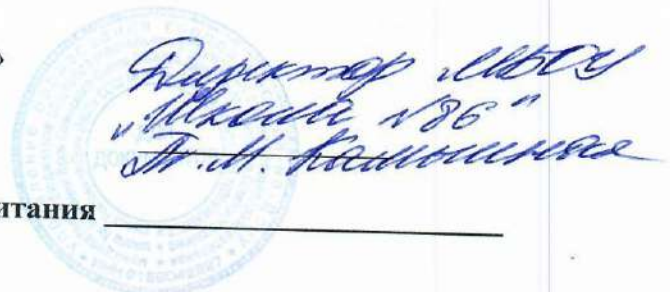 »
Директор МБОУ
"Школа №86"
Т.М. Камышная
итания